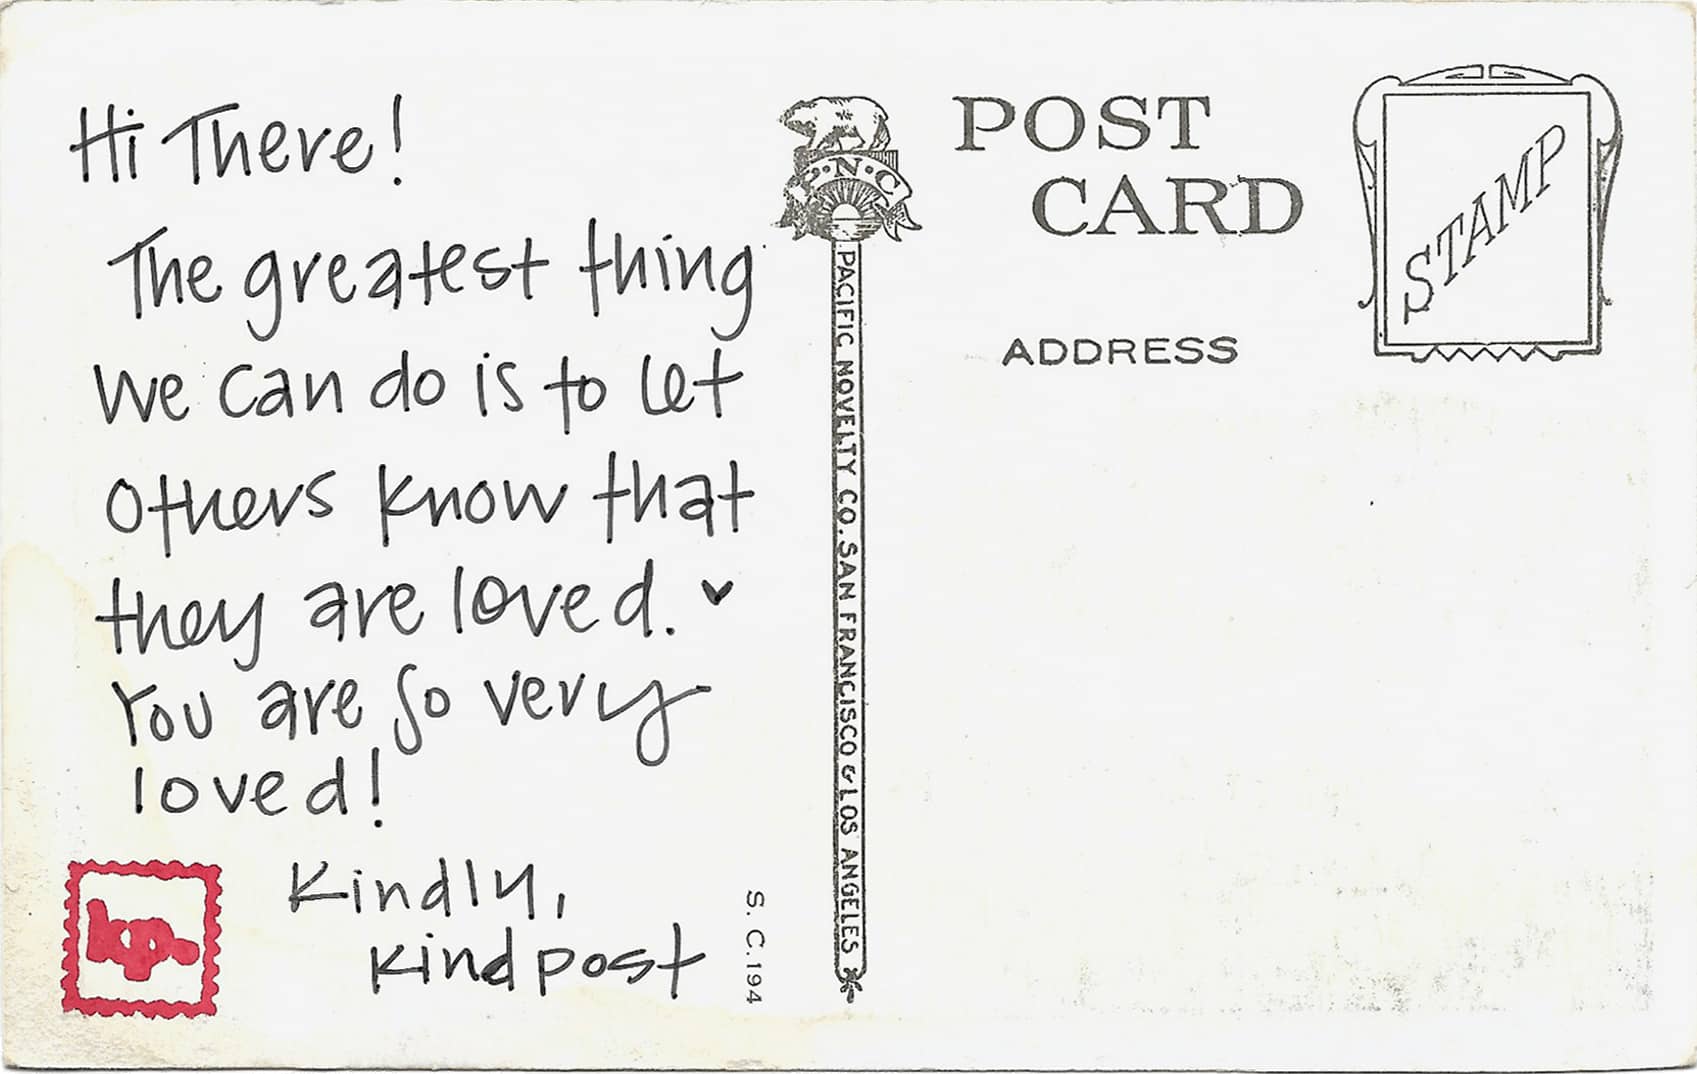 Hi There!
The greatest thing
we can do is to let
others know that
they are loved. ♥
You are so very
loved!
Kindly,
Kindpost
kp.
P·N·C
PACIFIC NOVELTY CO. SAN FRANCISCO & LOS ANGELES
S. C. 194
POST
CARD
ADDRESS
STAMP